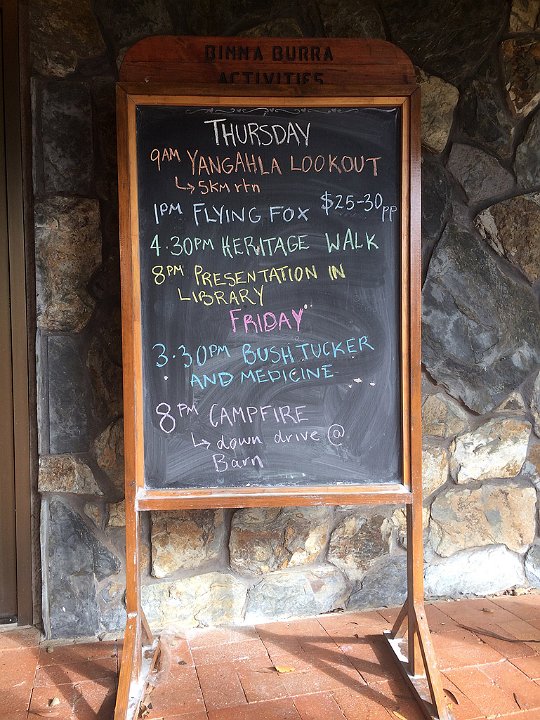 BINNA BURRA
ACTIVITIES
THURSDAY
9AM YANGAHLA LOOKOUT
↳ 5KM rtn
1PM FLYING FOX $25-30pp
4.30PM HERITAGE WALK
8PM PRESENTATION IN
LIBRARY
FRIDAY
3.30PM BUSH TUCKER
AND MEDICINE
8PM CAMPFIRE
↳ down drive @
Barn